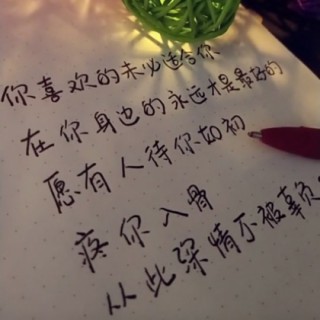 你喜欢的未必适合你
在你身边的永远才是最好的
愿有人待你如初
疼你入骨
从此深情不被辜负